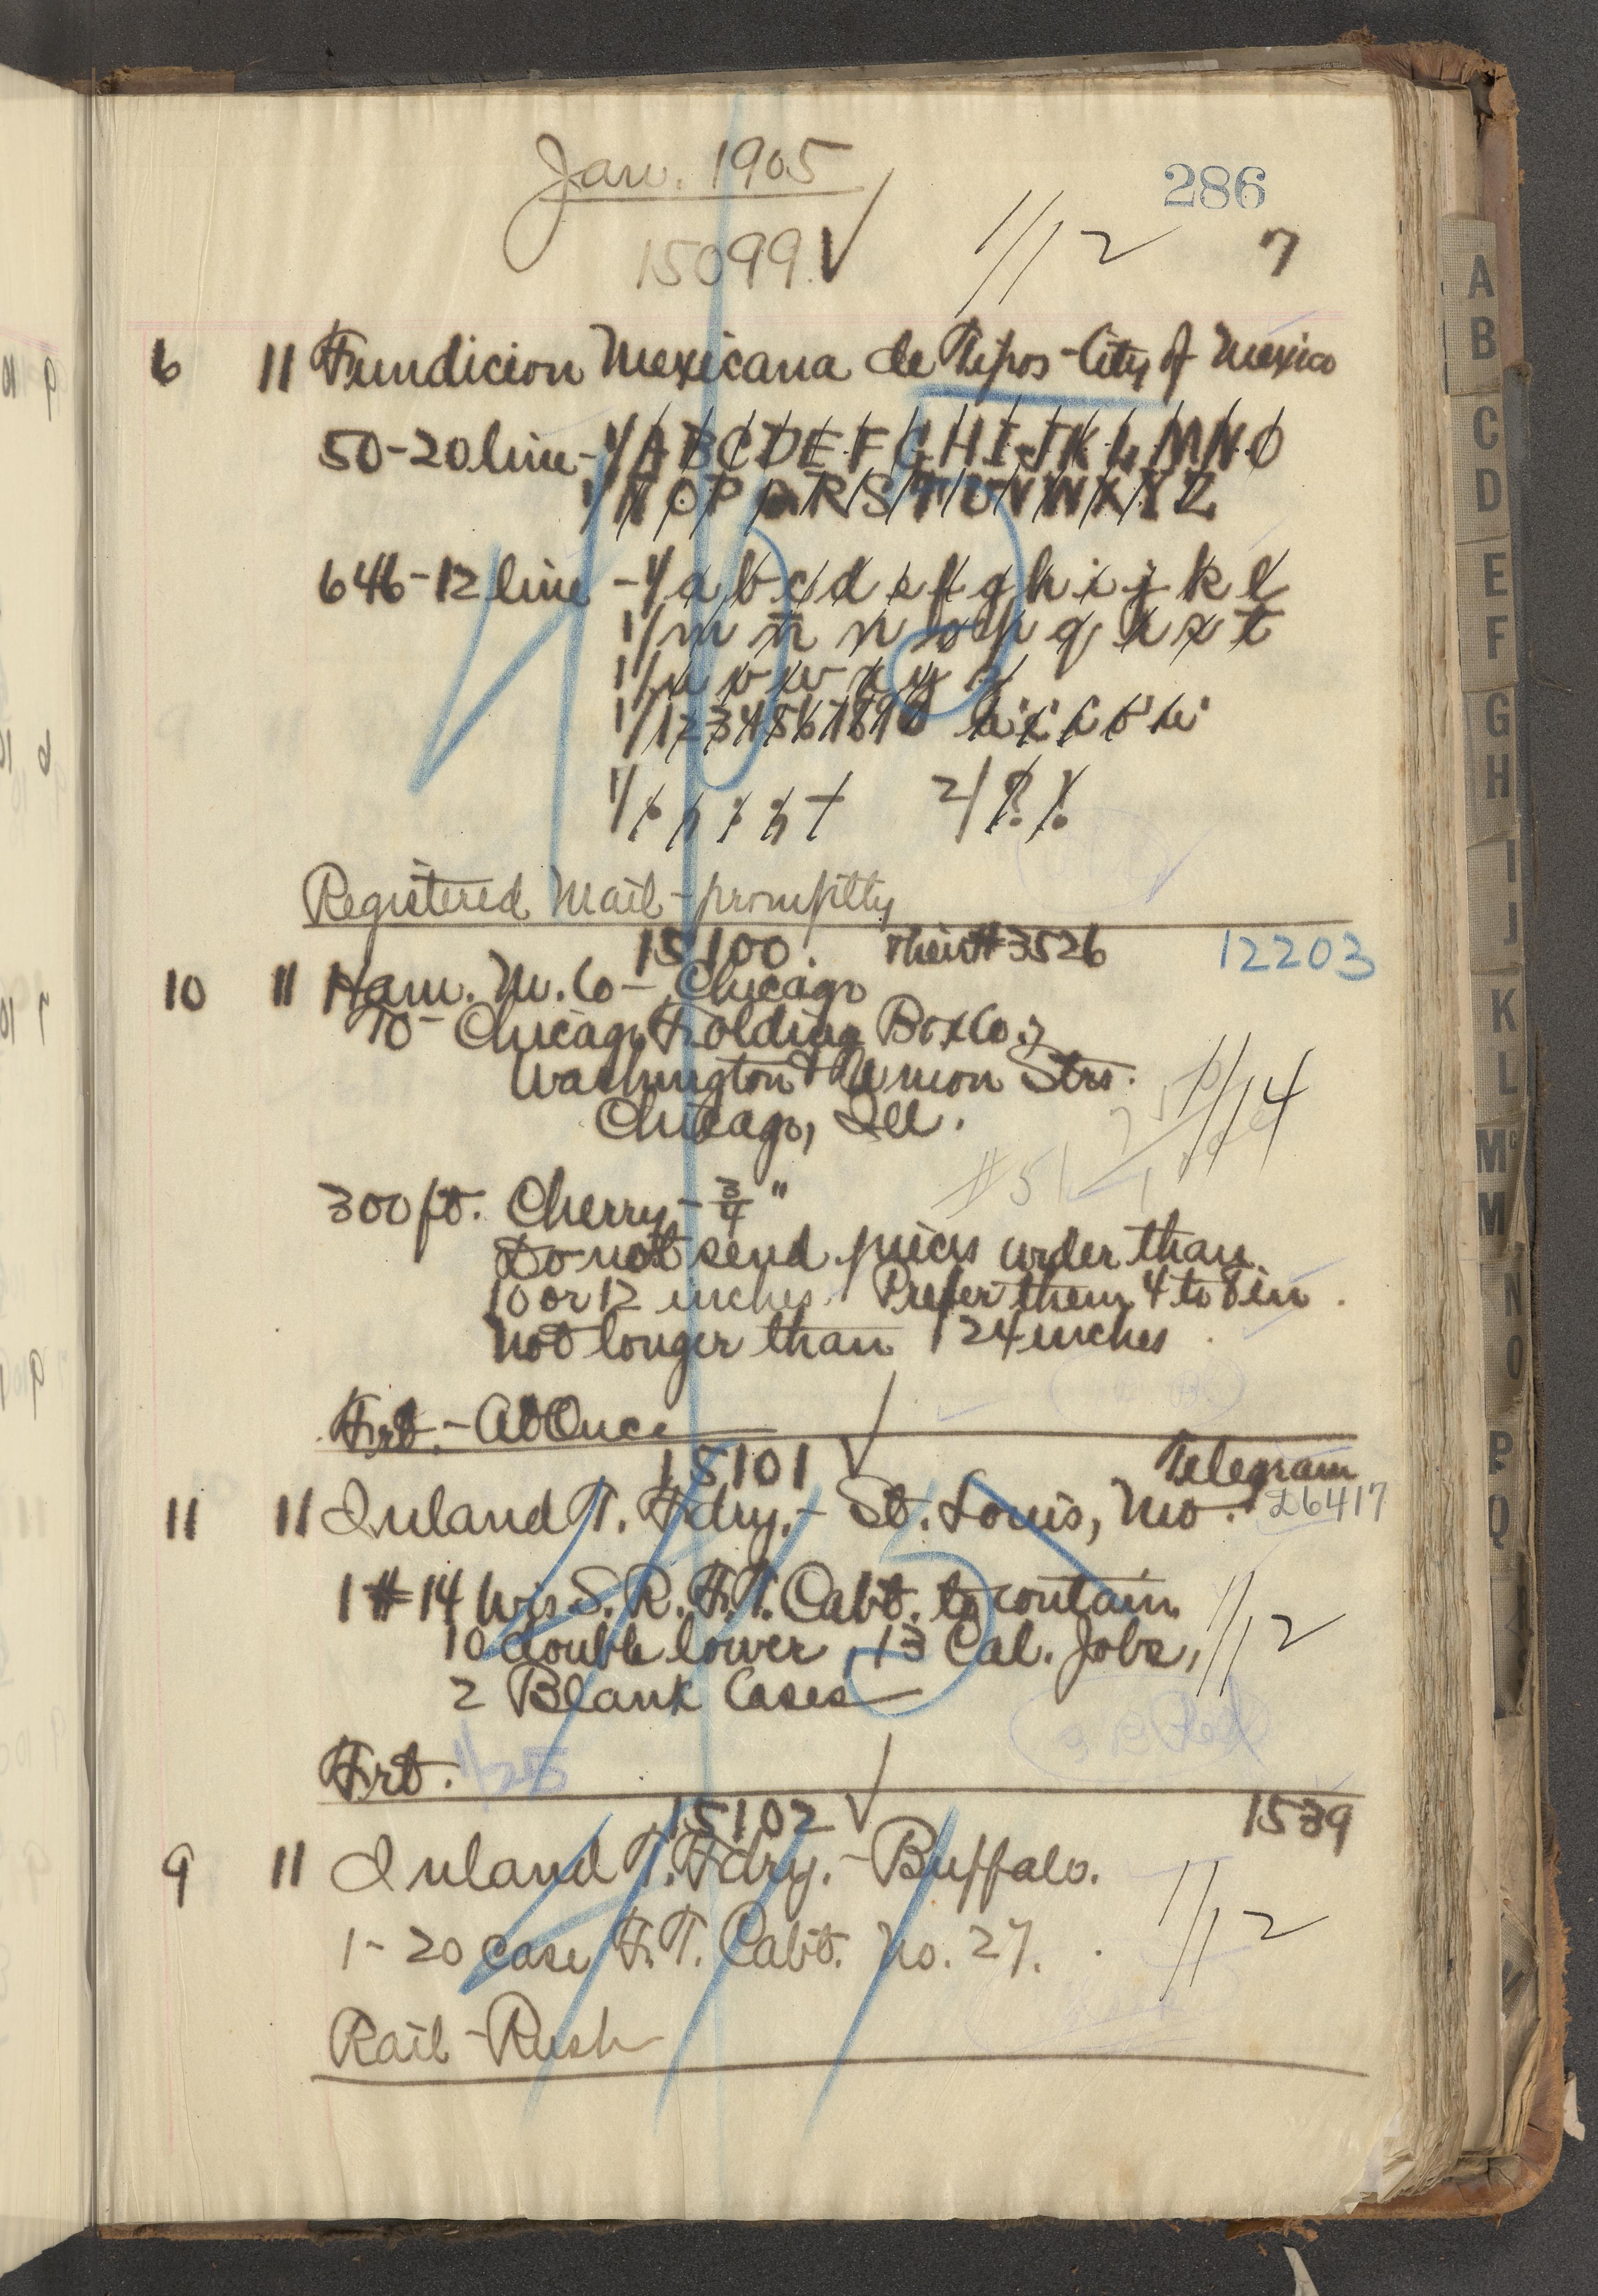 Jan. 1905
286
15099 ✓
1/12
7
6 11 Fundicion Mexicana de Tipos - City of Mexico
50-20 line - 1/ A B C D E F G H I J K L M N O
1/ Ñ O P Q R S T U V W X Y Z
646-12 line - 1/ a b c d e f g h i j k l
1/ m n̄ n o p q r s t
1/ u v w x y z
1/ 1 2 3 4 5 6 7 8 9 0 á é í ó ú
1/ . , : ; - 2/ ? !
Registered Mail - promptly
15100. Their # 3526 12203
10 11 Ham. M. Co - Chicago
To - Chicago Folding Box Co.,
Washington & Union Strs.
Chicago, Ill.
1/14
#51
300 ft. Cherry - 3/4"
Do not send pieces wider than
10 or 12 inches. Prefer them 4 to 8 in.
Not longer than 124 inches
Frt. - At Once
15101 ✓ Telegram
11 11 Inland T. Fdry. - St. Louis, Mo. 26417
1 #14 Wis S. R. F. T. Cabt. to contain
10 double lower, 13 Cal. Jobs, 1/12
2 Blank Cases
Frt. 1/25
15102 ✓ 1539
9 11 Inland T. Fdry. - Buffalo.
1/12
1- 20 case F. T. Cabt. No. 27.
Rail - Rush
A
B
C
D
E
F
G
H
I
J
K
L
Mc
M
N
O
P
Q